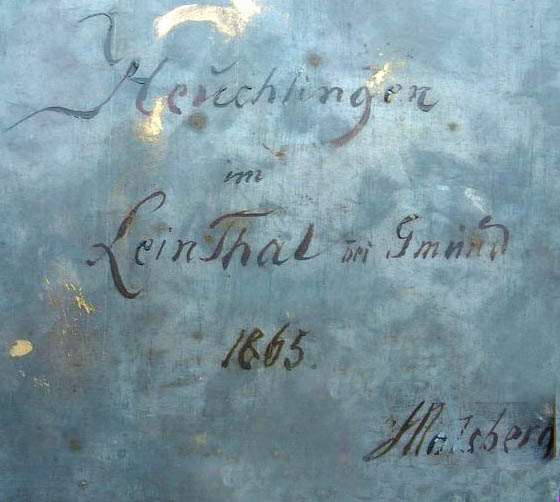 Heuchlingen
im
LeinThal bei Gmünd
1865.